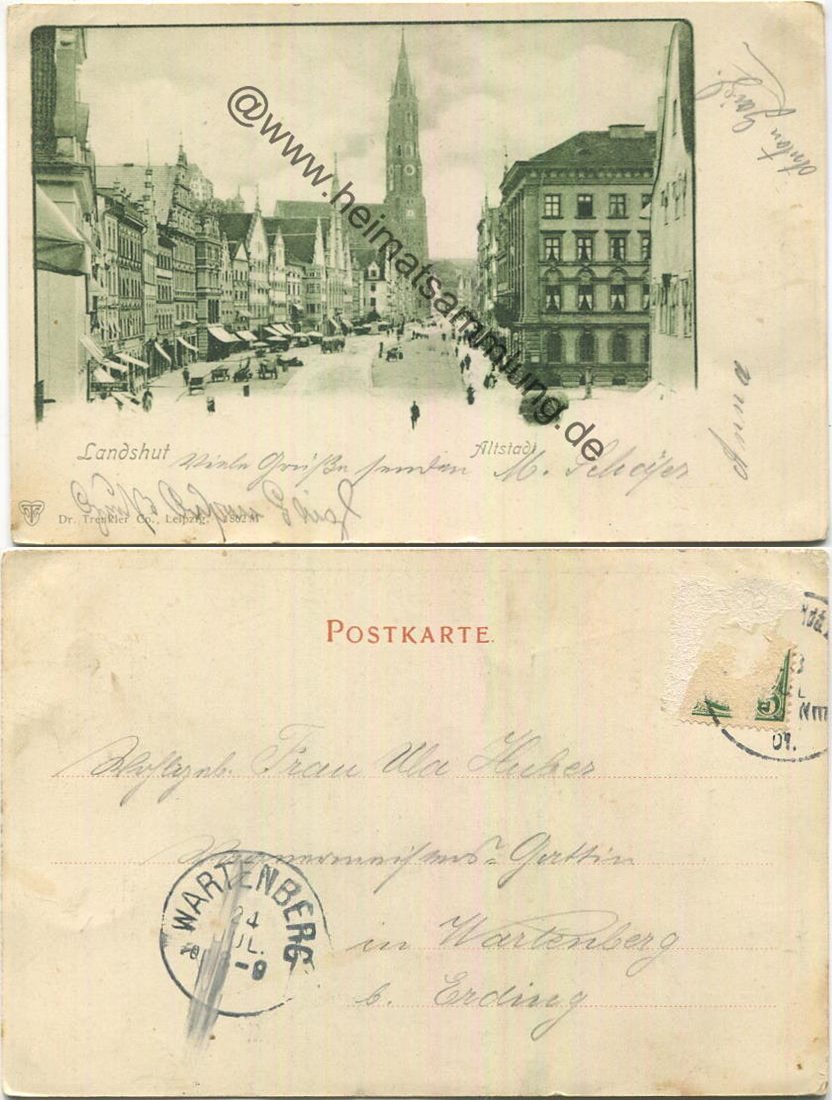 @www.heimatsammlung.de
Anton
Anna
Landshut
Altstadt
Viele Grüße senden M. Schäfer
Dr. Trenkler Co., Leipzig.
POSTKARTE.
5
01.
Wohlgeb. Frau Ula Huber
Gattin
WARTENBERG
24
UL.
8-9
in Wartenberg
b. Erding